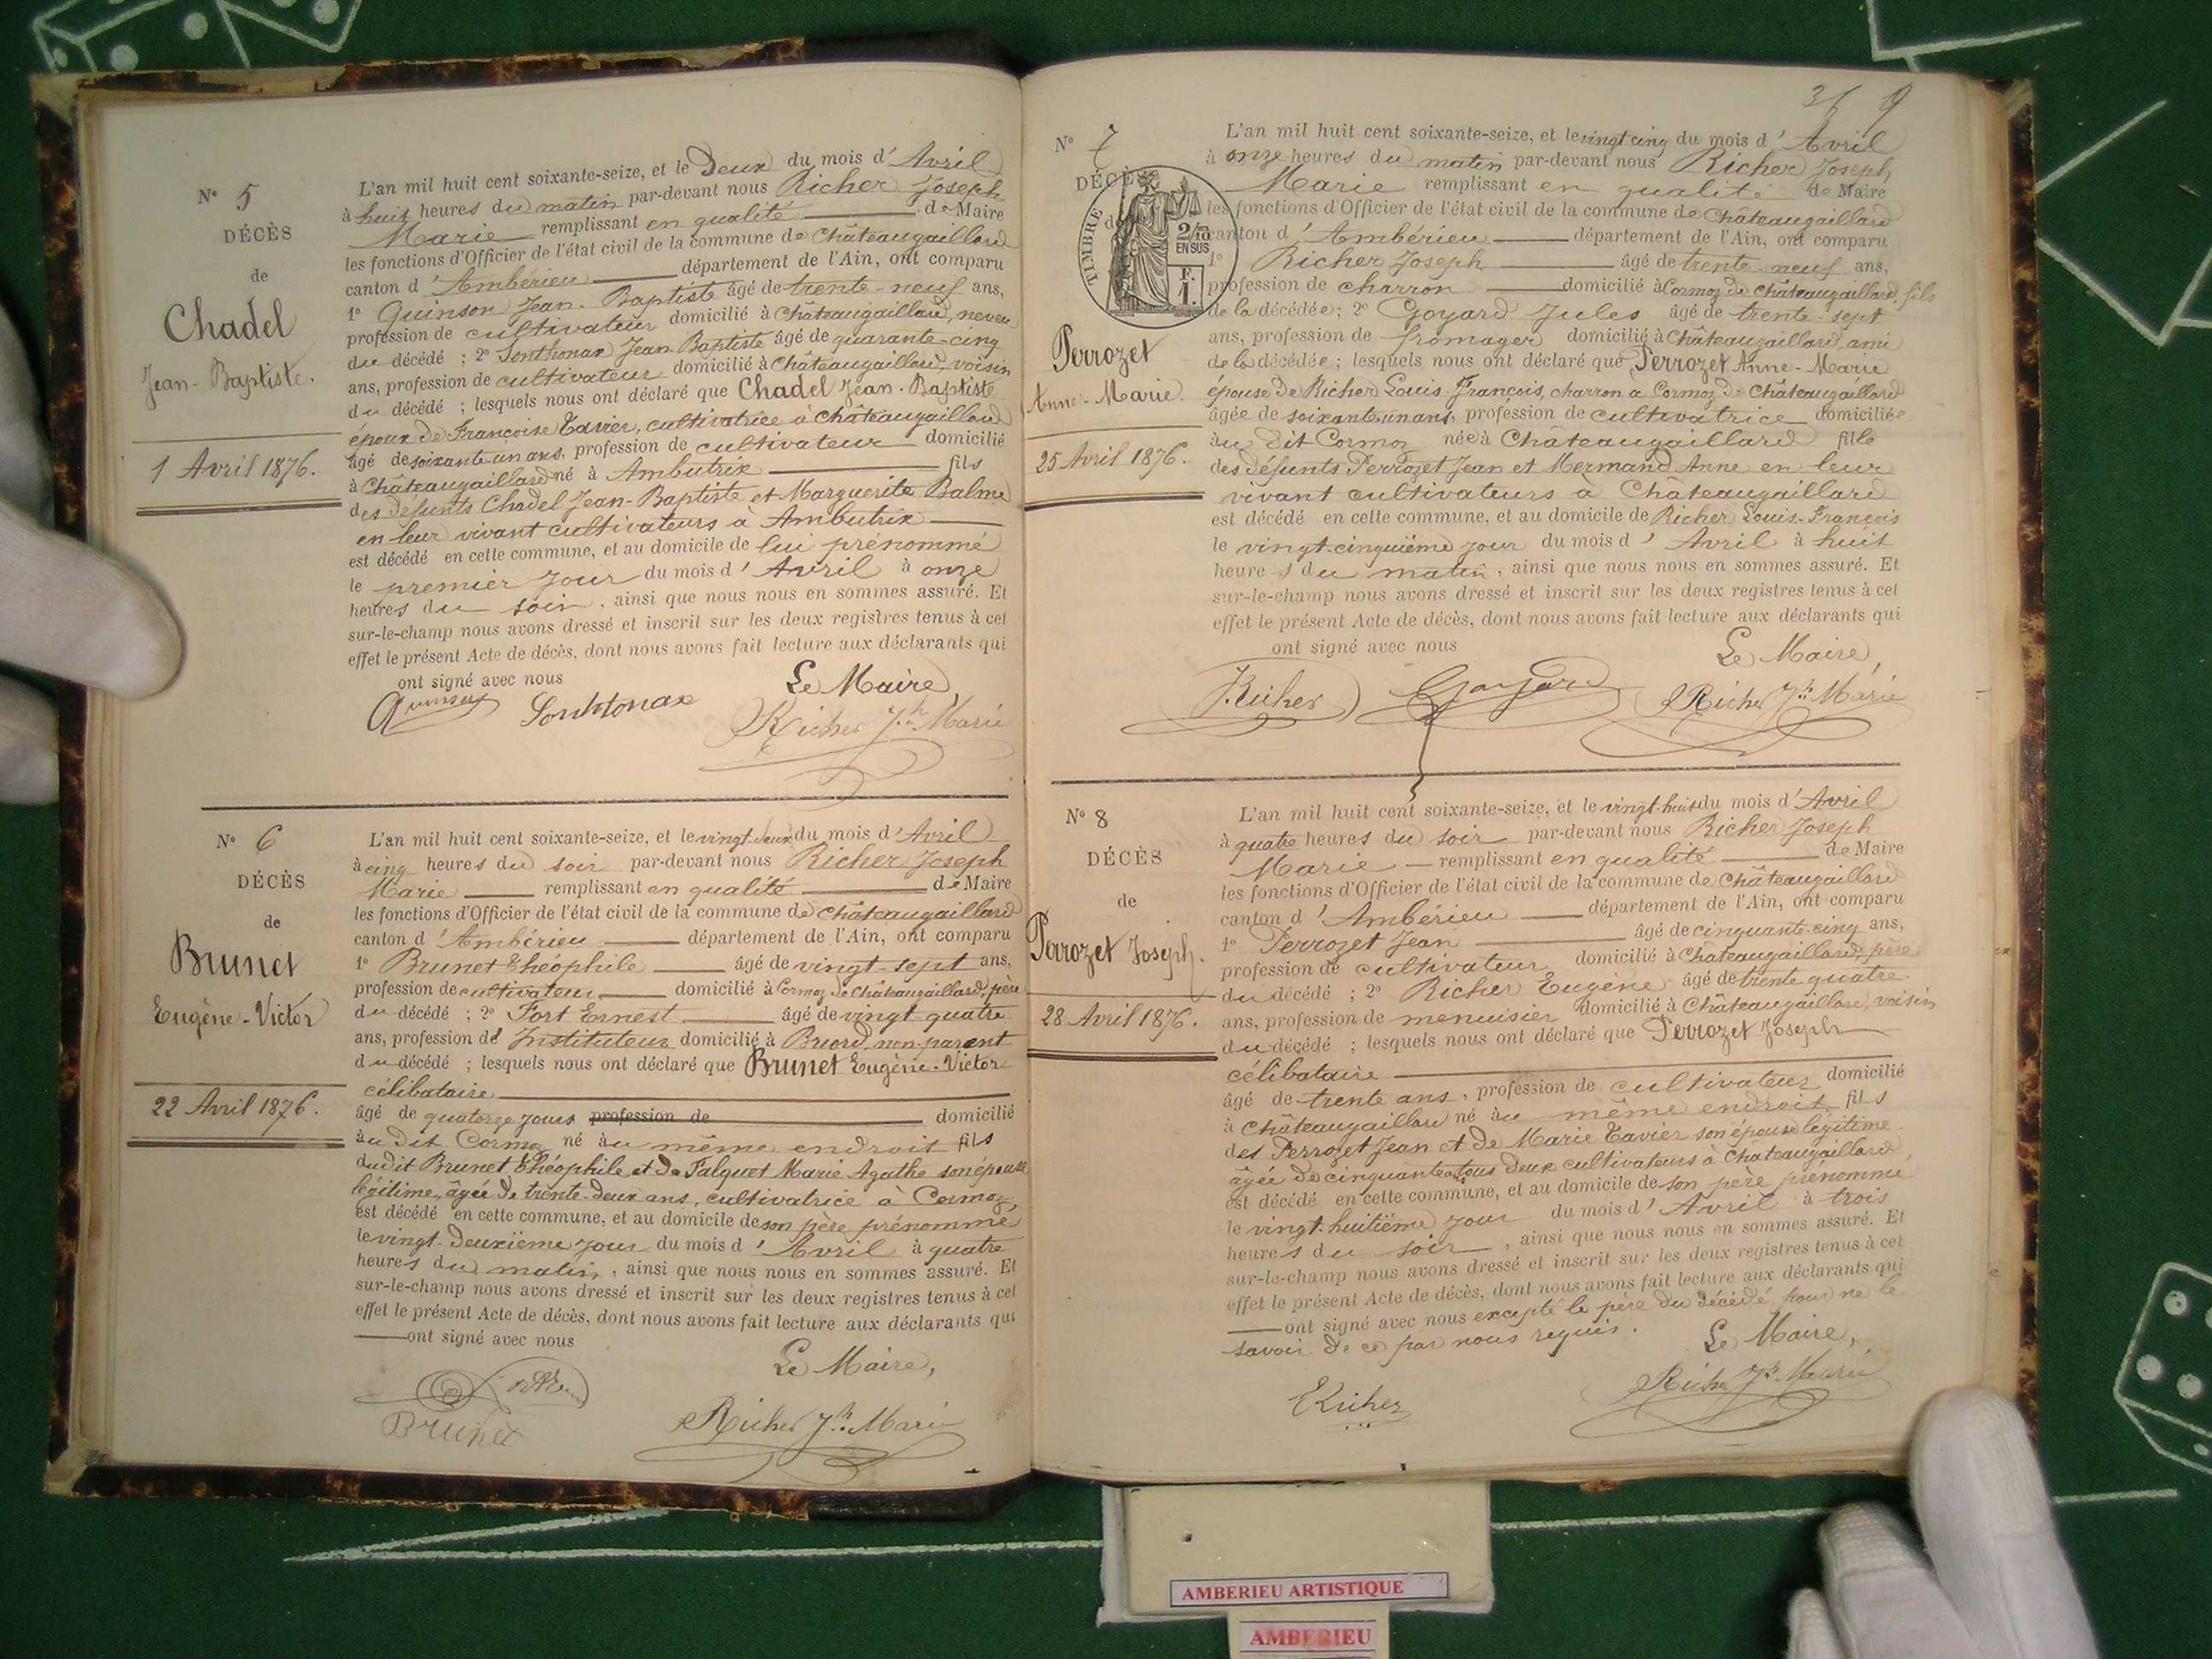 N° 5
DÉCÈS
de
Chadel
Jean-Baptiste.
1 Avril 1876.
L'an mil huit cent soixante-seize, et le Deux du mois d'Avril
à huit heures du matin par-devant nous Richer Joseph
Marie remplissant en qualité de Maire
les fonctions d'Officier de l'état civil de la commune de Châteaugaillard
canton d'Ambérieu département de l'Ain, ont comparu
1° Quinson Jean-Baptiste âgé de trente-neuf ans,
profession de cultivateur domicilié à Châteaugaillard, neveu
du décédé ; 2° Sonthonax Jean Baptiste âgé de quarante-cinq
ans, profession de cultivateur domicilié à Châteaugaillard, voisin
du décédé ; lesquels nous ont déclaré que Chadel Jean-Baptiste
époux de Françoise Tavier, cultivatrice à Châteaugaillard
âgé de soixante un ans, profession de cultivateur domicilié
à Châteaugaillard né à Ambutrix fils
des défunts Chadel Jean-Baptiste et Marguerite Balme
en leur vivant cultivateurs à Ambutrix
est décédé en cette commune, et au domicile de lui prénommé
le premier jour du mois d'Avril à onze
heures du soir, ainsi que nous nous en sommes assuré. Et
sur-le-champ nous avons dressé et inscrit sur les deux registres tenus à cet
effet le présent Acte de décès, dont nous avons fait lecture aux déclarants qui
ont signé avec nous
Le Maire,
Quinson Sonthonax
Richer Jh Marie
N° 6
DÉCÈS
de
Brunet
Eugène-Victor
22 Avril 1876.
L'an mil huit cent soixante-seize, et le vingt-deux du mois d'Avril
à cinq heures du soir par-devant nous Richer Joseph
Marie remplissant en qualité de Maire
les fonctions d'Officier de l'état civil de la commune de Châteaugaillard
canton d'Ambérieu département de l'Ain, ont comparu
1° Brunet Théophile âgé de vingt-sept ans,
profession de cultivateur domicilié à Cormoz de Châteaugaillard, père
du décédé ; 2° Fort Ernest âgé de vingt quatre
ans, profession d' Instituteur domicilié à Briord, non-parent
du décédé ; lesquels nous ont déclaré que Brunet Eugène-Victor
célibataire
âgé de quatorze jours profession de domicilié
au dit Cormoz né au même endroit fils
dudit Brunet Théophile et de Falquet Marie Agathe son épouse
légitime, âgée de trente-deux ans, cultivatrice à Cormoz,
est décédé en cette commune, et au domicile de son père prénommé
le vingt-deuxième jour du mois d'Avril à quatre
heures du matin, ainsi que nous nous en sommes assuré. Et
sur-le-champ nous avons dressé et inscrit sur les deux registres tenus à cet
effet le présent Acte de décès, dont nous avons fait lecture aux déclarants qui
ont signé avec nous
Le Maire,
Brunet
Richer Jh Marie
9
N° 7
DÉCÈS
TIMBRE
2/10
EN SUS
F.
1.
Perrozet
Anne-Marie.
25 Avril 1876.
L'an mil huit cent soixante-seize, et le vingt cinq du mois d'Avril
à onze heures du matin par-devant nous Richer Joseph
Marie remplissant en qualité de Maire
les fonctions d'Officier de l'état civil de la commune de Châteaugaillard
canton d'Ambérieu département de l'Ain, ont comparu
1° Richer Joseph âgé de trente-neuf ans,
profession de charron domicilié à Cormoz de Châteaugaillard, fils
de la décédée ; 2° Goyard Jules âgé de trente-sept
ans, profession de fromager domicilié à Châteaugaillard, ami
de la décédée ; lesquels nous ont déclaré que Perrozet Anne-Marie
épouse de Richer Louis-François, charron à Cormoz de Châteaugaillard
âgée de soixante un ans, profession de cultivatrice domiciliée
au dit Cormoz née à Châteaugaillard fille
des défunts Perrozet Jean et Mermand Anne en leur
vivant cultivateurs à Châteaugaillard
est décédé en cette commune, et au domicile de Richer Louis-François
le vingt-cinquième jour du mois d'Avril à huit
heures du matin, ainsi que nous nous en sommes assuré. Et
sur-le-champ nous avons dressé et inscrit sur les deux registres tenus à cet
effet le présent Acte de décès, dont nous avons fait lecture aux déclarants qui
ont signé avec nous
Le Maire,
J. Richer Goyard Richer Jh Marie
N° 8
DÉCÈS
de
Perrozet Joseph.
28 Avril 1876.
L'an mil huit cent soixante-seize, et le vingt-huit du mois d'Avril
à quatre heures du soir par-devant nous Richer Joseph
Marie remplissant en qualité de Maire
les fonctions d'Officier de l'état civil de la commune de Châteaugaillard
canton d'Ambérieu département de l'Ain, ont comparu
1° Perrozet Jean âgé de cinquante-cinq ans,
profession de cultivateur domicilié à Châteaugaillard, père
du décédé ; 2° Richer Eugène âgé de trente quatre
ans, profession de menuisier domicilié à Châteaugaillard, voisin
du décédé ; lesquels nous ont déclaré que Perrozet Joseph
célibataire
âgé de trente ans, profession de cultivateur domicilié
à Châteaugaillard né au même endroit fils
des Perrozet Jean et de Marie Tavier son épouse légitime
âgée de cinquante tous deux cultivateurs à Châteaugaillard
est décédé en cette commune, et au domicile de son père prénommé
le vingt-huitième jour du mois d'Avril à trois
heures du soir, ainsi que nous nous en sommes assuré. Et
sur-le-champ nous avons dressé et inscrit sur les deux registres tenus à cet
effet le présent Acte de décès, dont nous avons fait lecture aux déclarants qui
ont signé avec nous excepté le père du décédé pour ne le
savoir de ce par nous requis.
Le Maire,
E Richer
Richer Jh Marie
AMBERIEU ARTISTIQUE
AMBERIEU